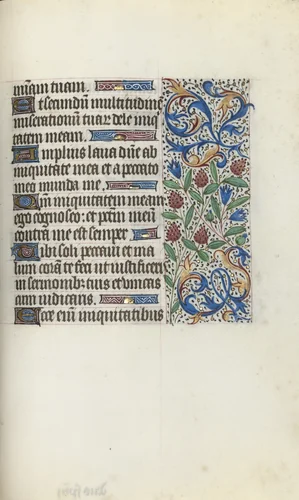 mīam tuam.
Et scundū multitudinē
miserationū tuar dele iniq
tatem meam.
Amplius laua dñe ab
iniquitate mea et a peccato
meo munda me.
Qm iniquitatem meam
ego cognosco: et pctm meū
contra me est semper.
Tibi soli peccaui et ma
lum corā te feci ut iustificeris
in sermonibus tuis et vincas
cum iudicaris.
Ecce enī iniquitatibus